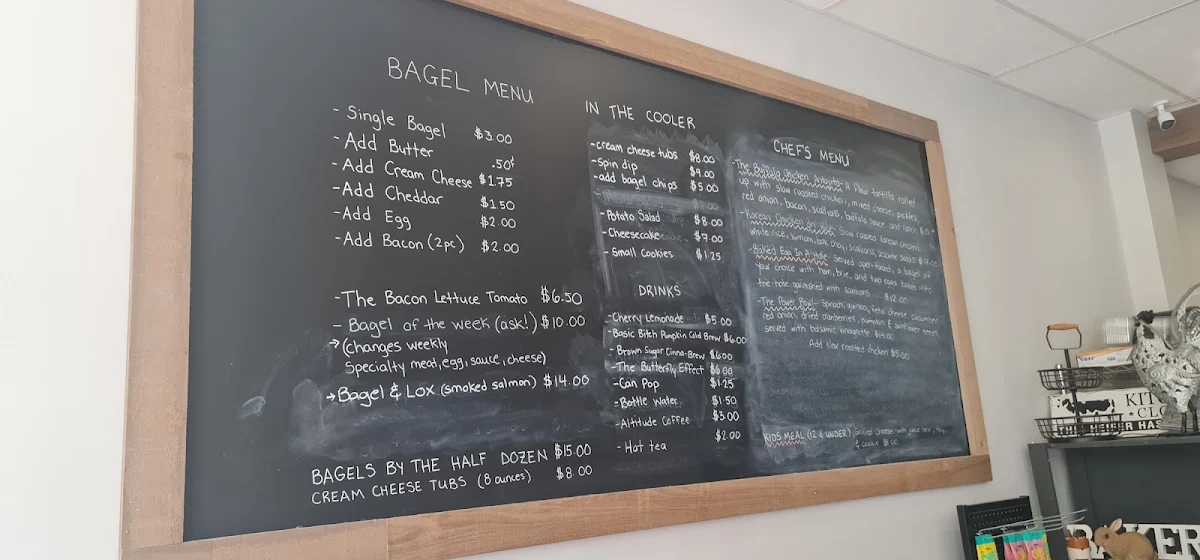 BAGEL MENU
- Single Bagel $3.00
- Add Butter .50¢
- Add Cream Cheese $1.75
- Add Cheddar $1.50
- Add Egg $2.00
- Add Bacon (2pc) $2.00
- The Bacon Lettuce Tomato $6.50
- Bagel of the week (ask!) $10.00
→ (changes weekly
Specialty meat, egg, sauce, cheese)
→ Bagel & Lox (smoked salmon) $14.00
BAGELS BY THE HALF DOZEN $15.00
CREAM CHEESE TUBS (8 ounces) $8.00
IN THE COOLER
- cream cheese tubs $8.00
- Spin dip $9.00
- add bagel chips $5.00
- Potato Salad $8.00
- Cheesecake $7.00
- Small Cookies $1.25
DRINKS
- Cherry Lemonade $5.00
- Basic Bitch Pumpkin Cold Brew $6.00
- Brown Sugar Cinna-Brew $6.00
- The Butterfly Effect $6.00
- Can Pop $1.25
- Bottle Water $1.50
- Altitude Coffee $3.00
- Hot tea $2.00
CHEF'S MENU
- The Buffalo Chicken : A flour tortilla rolled
up with slow roasted chicken, mixed cheese, pickles,
red onion, bacon, scallions, buffalo sauce and ranch
- Korean Chicken : Slow roasted Korean chicken,
white rice, bok choy, scallions, sesame seeds
- Baked Egg In A Hole: Served open-faced, a bagel of
your choice with ham, brie, and two eggs baked into
the hole garnished with scallions. $12.00
- The Power Bowl- Spinach, quinoa, feta cheese, cucumber
red onion, dried cranberries, pumpkin & sunflower seeds
served with balsamic vinaigrette. $14.00
Add slow roasted chicken $5.00
KIDS MEAL (12 & UNDER) Grilled cheese with
& cookie
KIT
CLO
BAKER